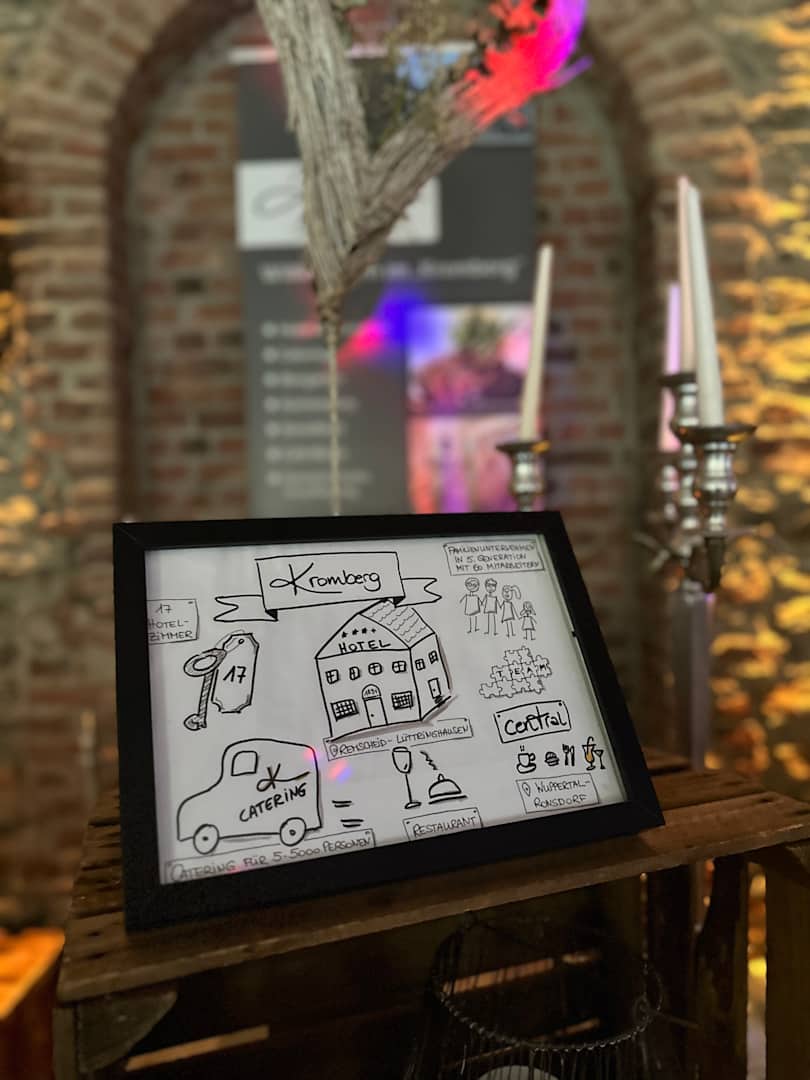 Kromberg
FAMILIENUNTERNEHMEN
IN 5. GENERATION
MIT 60 MITARBEITERN
17
HOTEL-
ZIMMER
17
HOTEL
TEAM
REMSCHEID-LÜTTRINGHAUSEN
central
K
CATERING
WUPPERTAL-
RONSDORF
RESTAURANT
CATERING FÜR 5-5000 PERSONEN